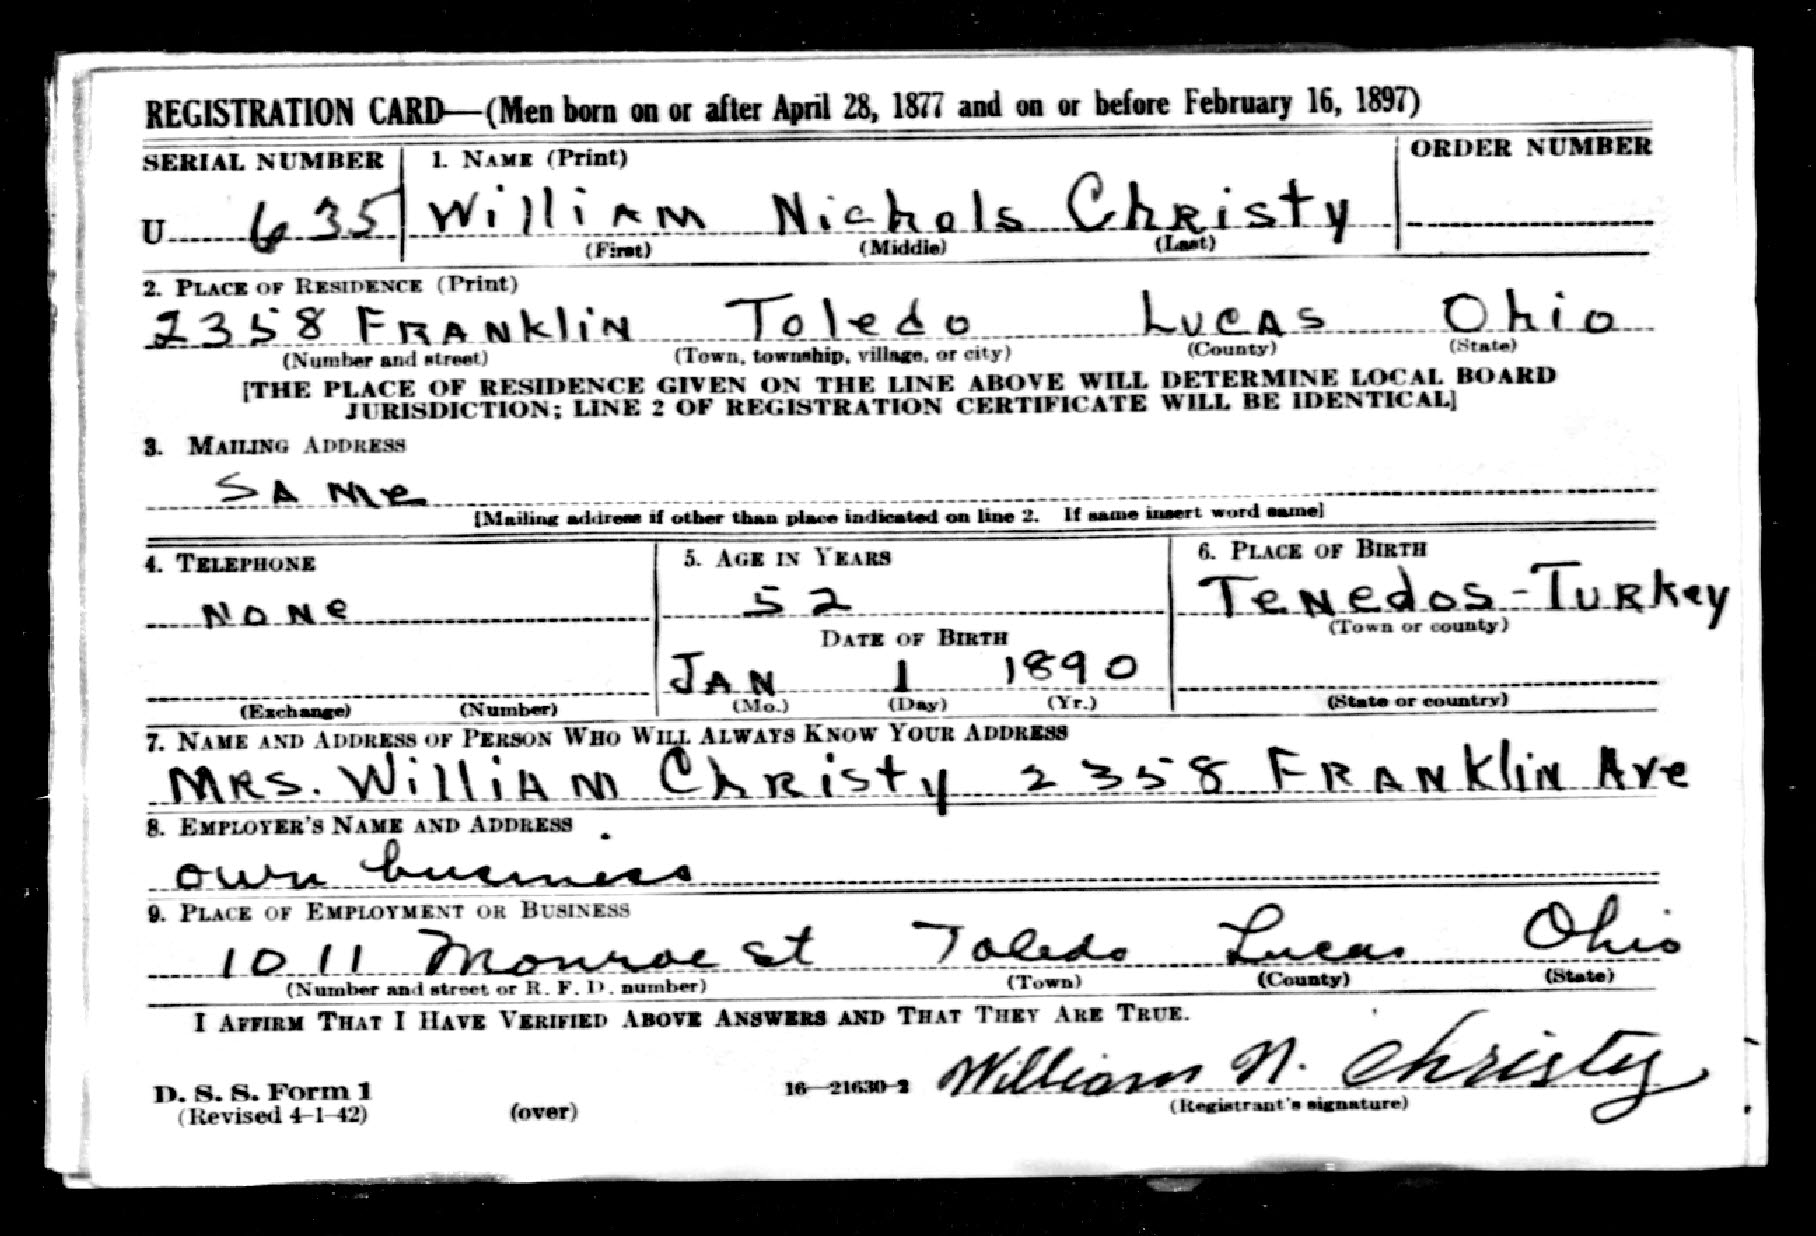 REGISTRATION CARD—(Men born on or after April 28, 1877 and on or before February 16, 1897)
SERIAL NUMBER 1. NAME (Print) ORDER NUMBER
U 635 William Nichols Christy
(First) (Middle) (Last)
2. PLACE OF RESIDENCE (Print)
2358 FRANKliN Toledo LUCAS Ohio
(Number and street) (Town, township, village, or city) (County) (State)
[THE PLACE OF RESIDENCE GIVEN ON THE LINE ABOVE WILL DETERMINE LOCAL BOARD
JURISDICTION; LINE 2 OF REGISTRATION CERTIFICATE WILL BE IDENTICAL]
3. MAILING ADDRESS
SAMe
[Mailing address if other than place indicated on line 2. If same insert word same]
4. TELEPHONE 5. AGE IN YEARS 6. PLACE OF BIRTH
NONe 52 TeNedos-TURKey
(Town or county)
DATE OF BIRTH
JAN 1 1890
(Exchange) (Number) (Mo.) (Day) (Yr.) (State or country)
7. NAME AND ADDRESS OF PERSON WHO WILL ALWAYS KNOW YOUR ADDRESS
MRS. WilliAM ChRisty 2358 FRANKliN Ave
8. EMPLOYER'S NAME AND ADDRESS
own business
9. PLACE OF EMPLOYMENT OR BUSINESS
1011 Monroe st Toledo Lucas Ohio
(Number and street or R. F. D. number) (Town) (County) (State)
I AFFIRM THAT I HAVE VERIFIED ABOVE ANSWERS AND THAT THEY ARE TRUE.
D. S. S. Form 1 16—21630-2 William N. Christy
(Revised 4-1-42) (over) (Registrant's signature)